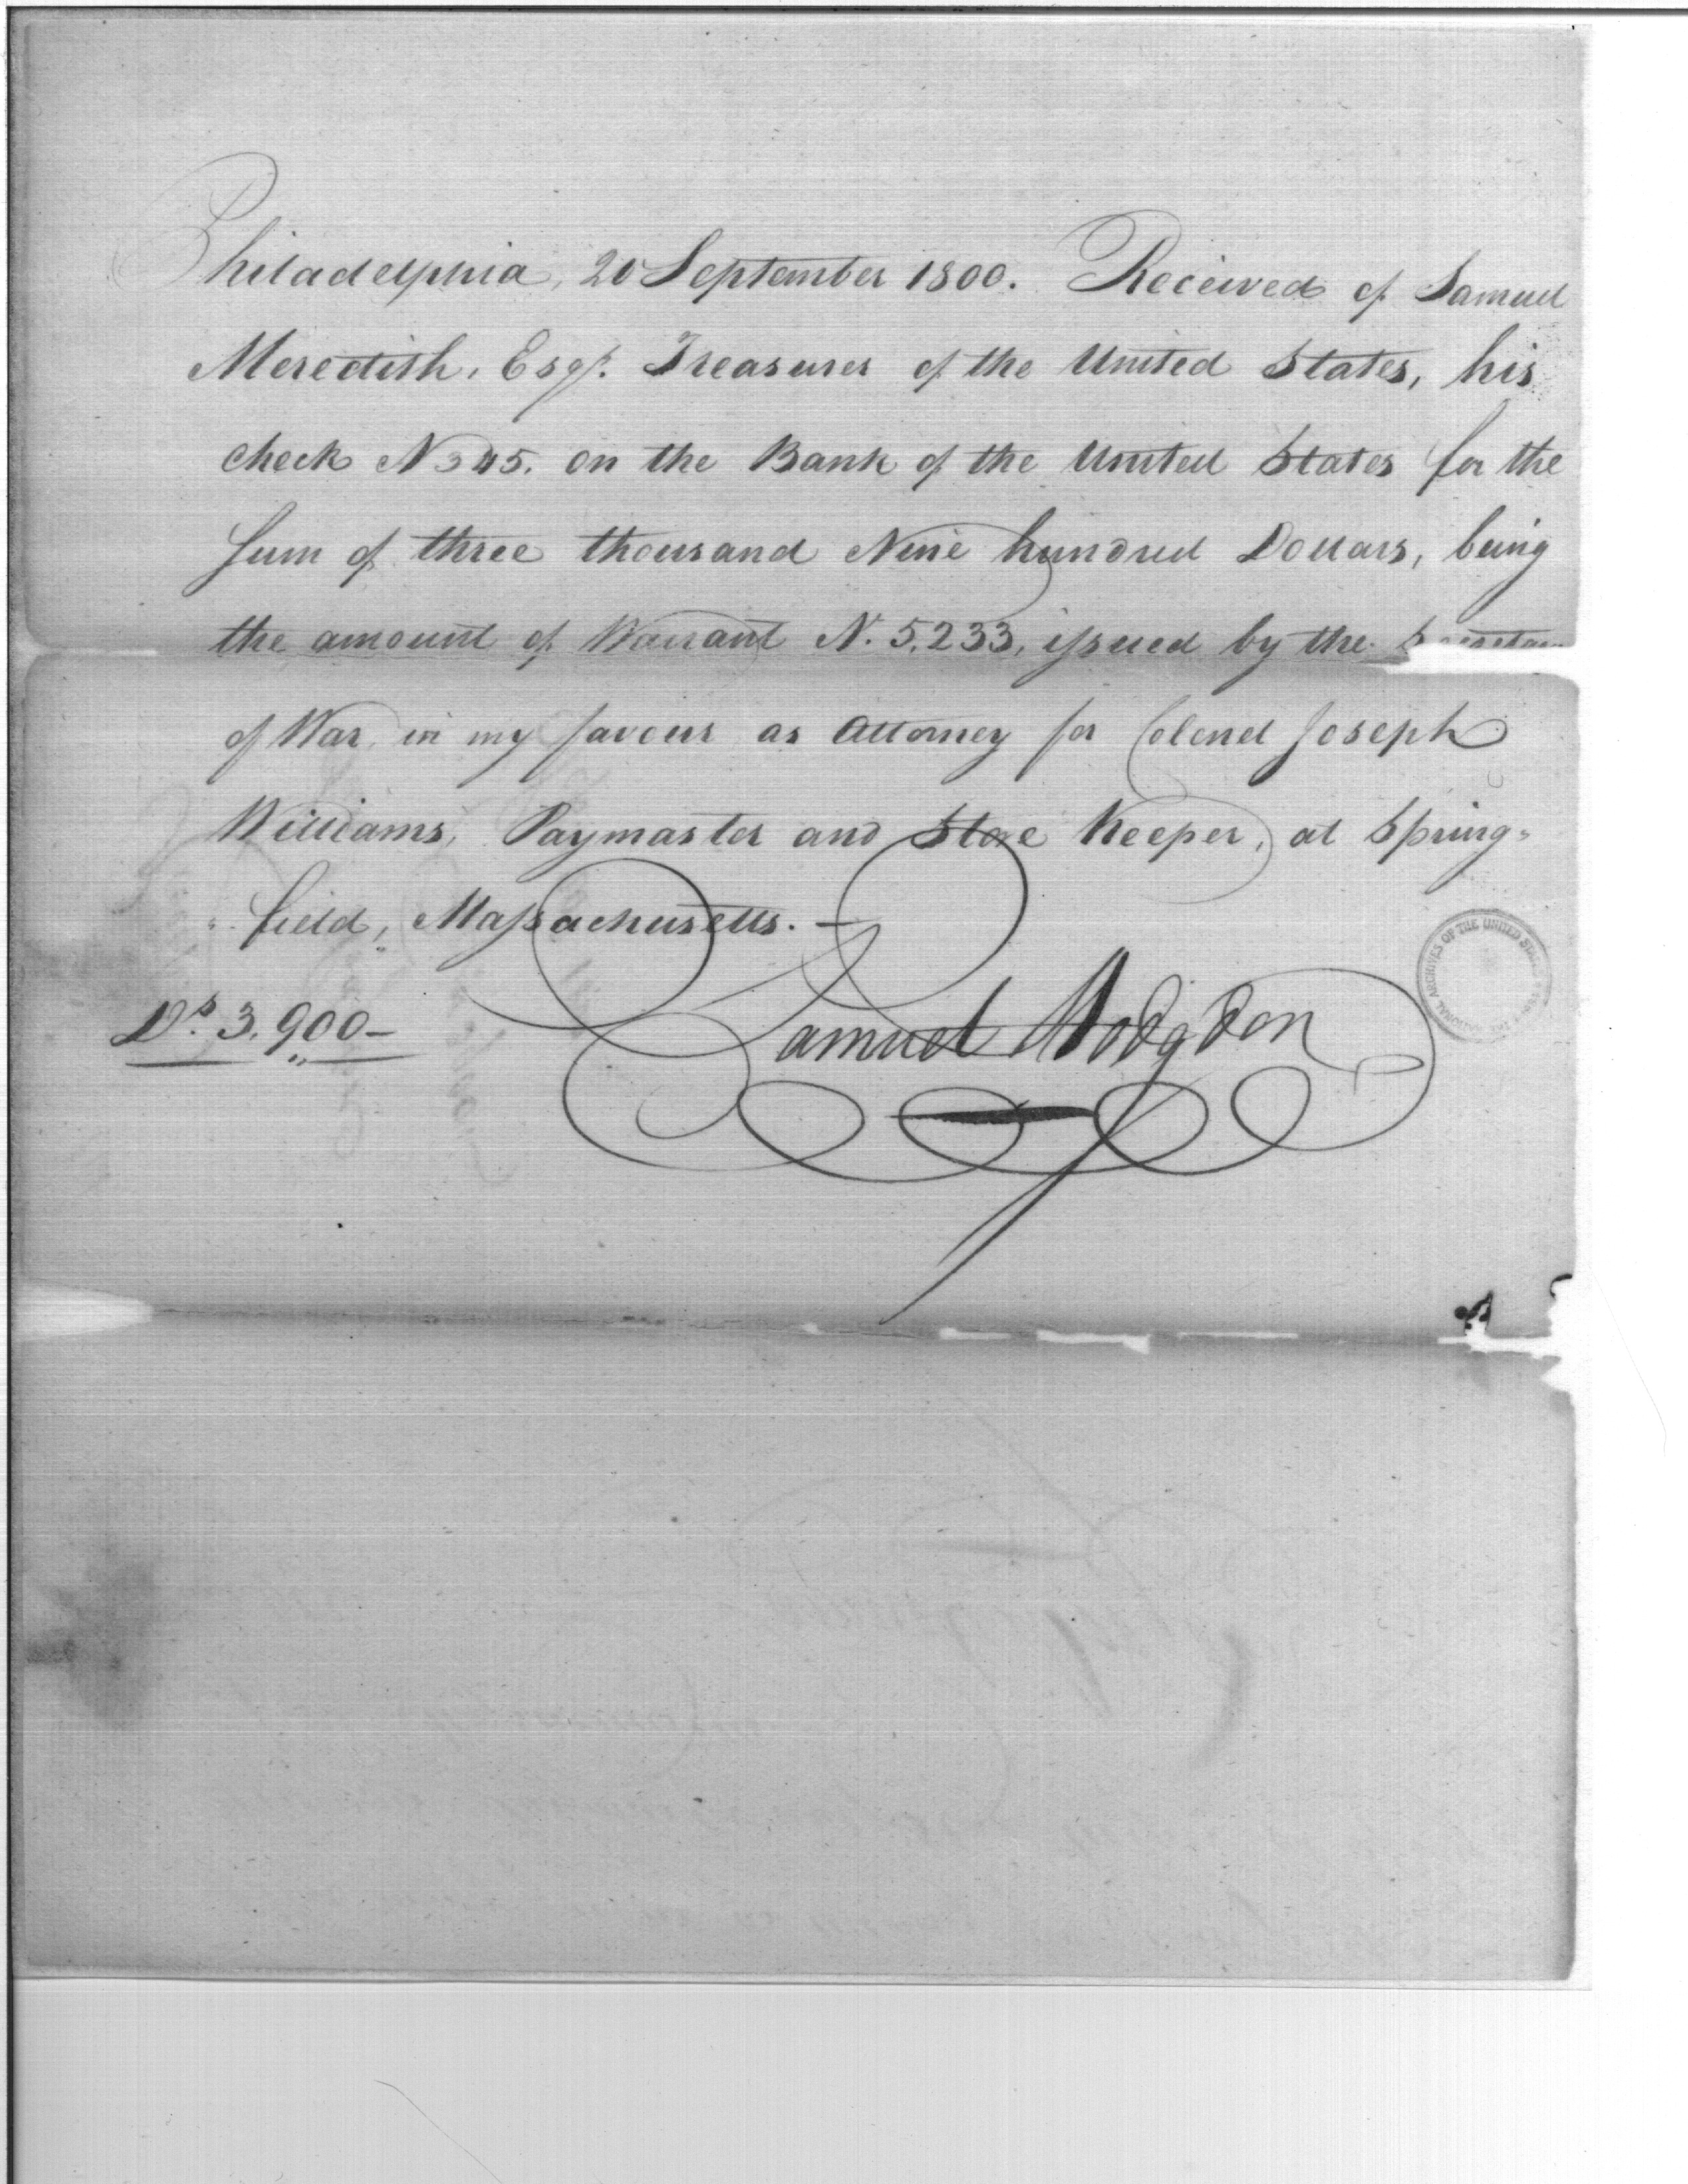 Philadelphia, 20 September 1800. Received of Samuel
Meredith, Esqr. Treasurer of the United States, his
check N 345. on the Bank of the United States for the
sum of three thousand Nine hundred Dollars, being
the amount of Warrant N. 5.233, issued by the Secretary
of War, in my favour as Attorney for Colonel Joseph
Williams, Paymaster and Store Keeper, at Spring=
"field, Massachusetts. —
Ds. 3.900—
Samuel Hodgdon
NATIONAL ARCHIVES OF THE UNITED STATES